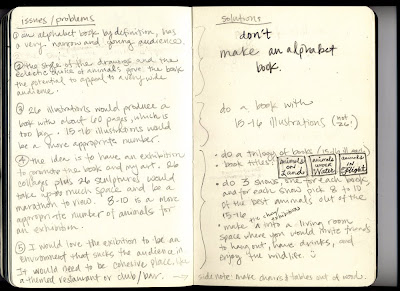 issues/problems
① an alphabet book by definition, has
a very narrow and young audience.
② the style of the drawings and the
eclectic choice of animals give the book
the potential to appeal to a very wide
audience.
③ 26 illustrations would produce a
book with about 60 pages, which is
too big. 15-16 illustrations would
be a more appropriate number.
④ the idea is to have an exhibition
to promote the book and my art. 26
collages plus 26 sculptures would
take up too much space and be a
marathon to view. 8-10 is a more
appropriate number of animals for
an exhibition.
⑤ I would love the exhibition to be an
environment that sucks the audience in
It would need to be cohesive place, like
a themed restaurant or club/bar.
solutions
don't
make an alphabet
book.
do a book with
15-16 illustrations (not 26!)
• do a trilogy of books
• book titles: animals on Land: animals under Water animals in Flight
• do 3 shows, one for each book,
and for each show pick 8 to 10
of the best animals out of the
15-16
• make a into a living room
space where you would invite friends
to hang out, have drinks, and
enjoy the wild life. :)
side note: make chairs & tables out of wood.